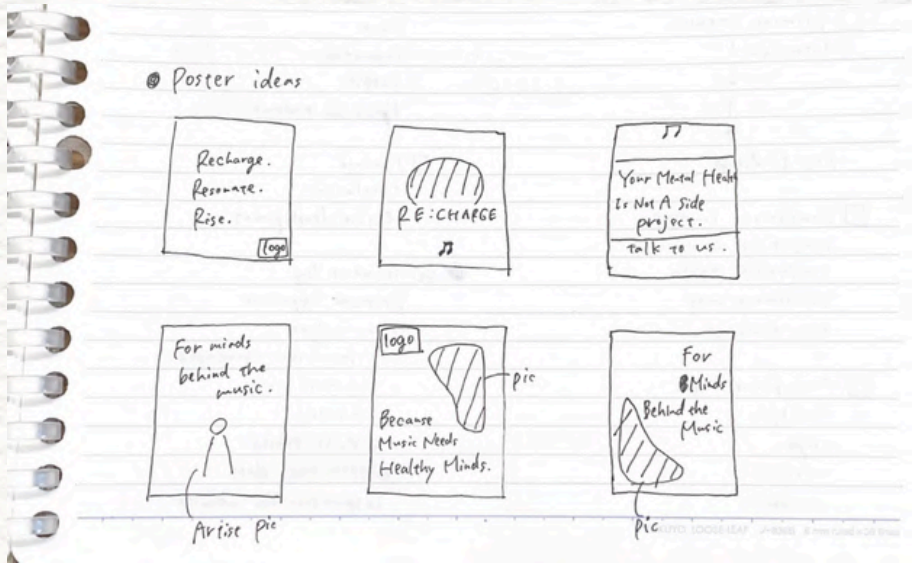 Poster ideas
Recharge.
Resonate.
Rise.
logo
RE:CHARGE
Your Mental Health
Is Not A Side
project.
Talk to us.
For minds
behind the
music.
Artist pic
logo
pic
Because
Music Needs
Healthy Minds.
For
Minds
Behind the
Music
pic